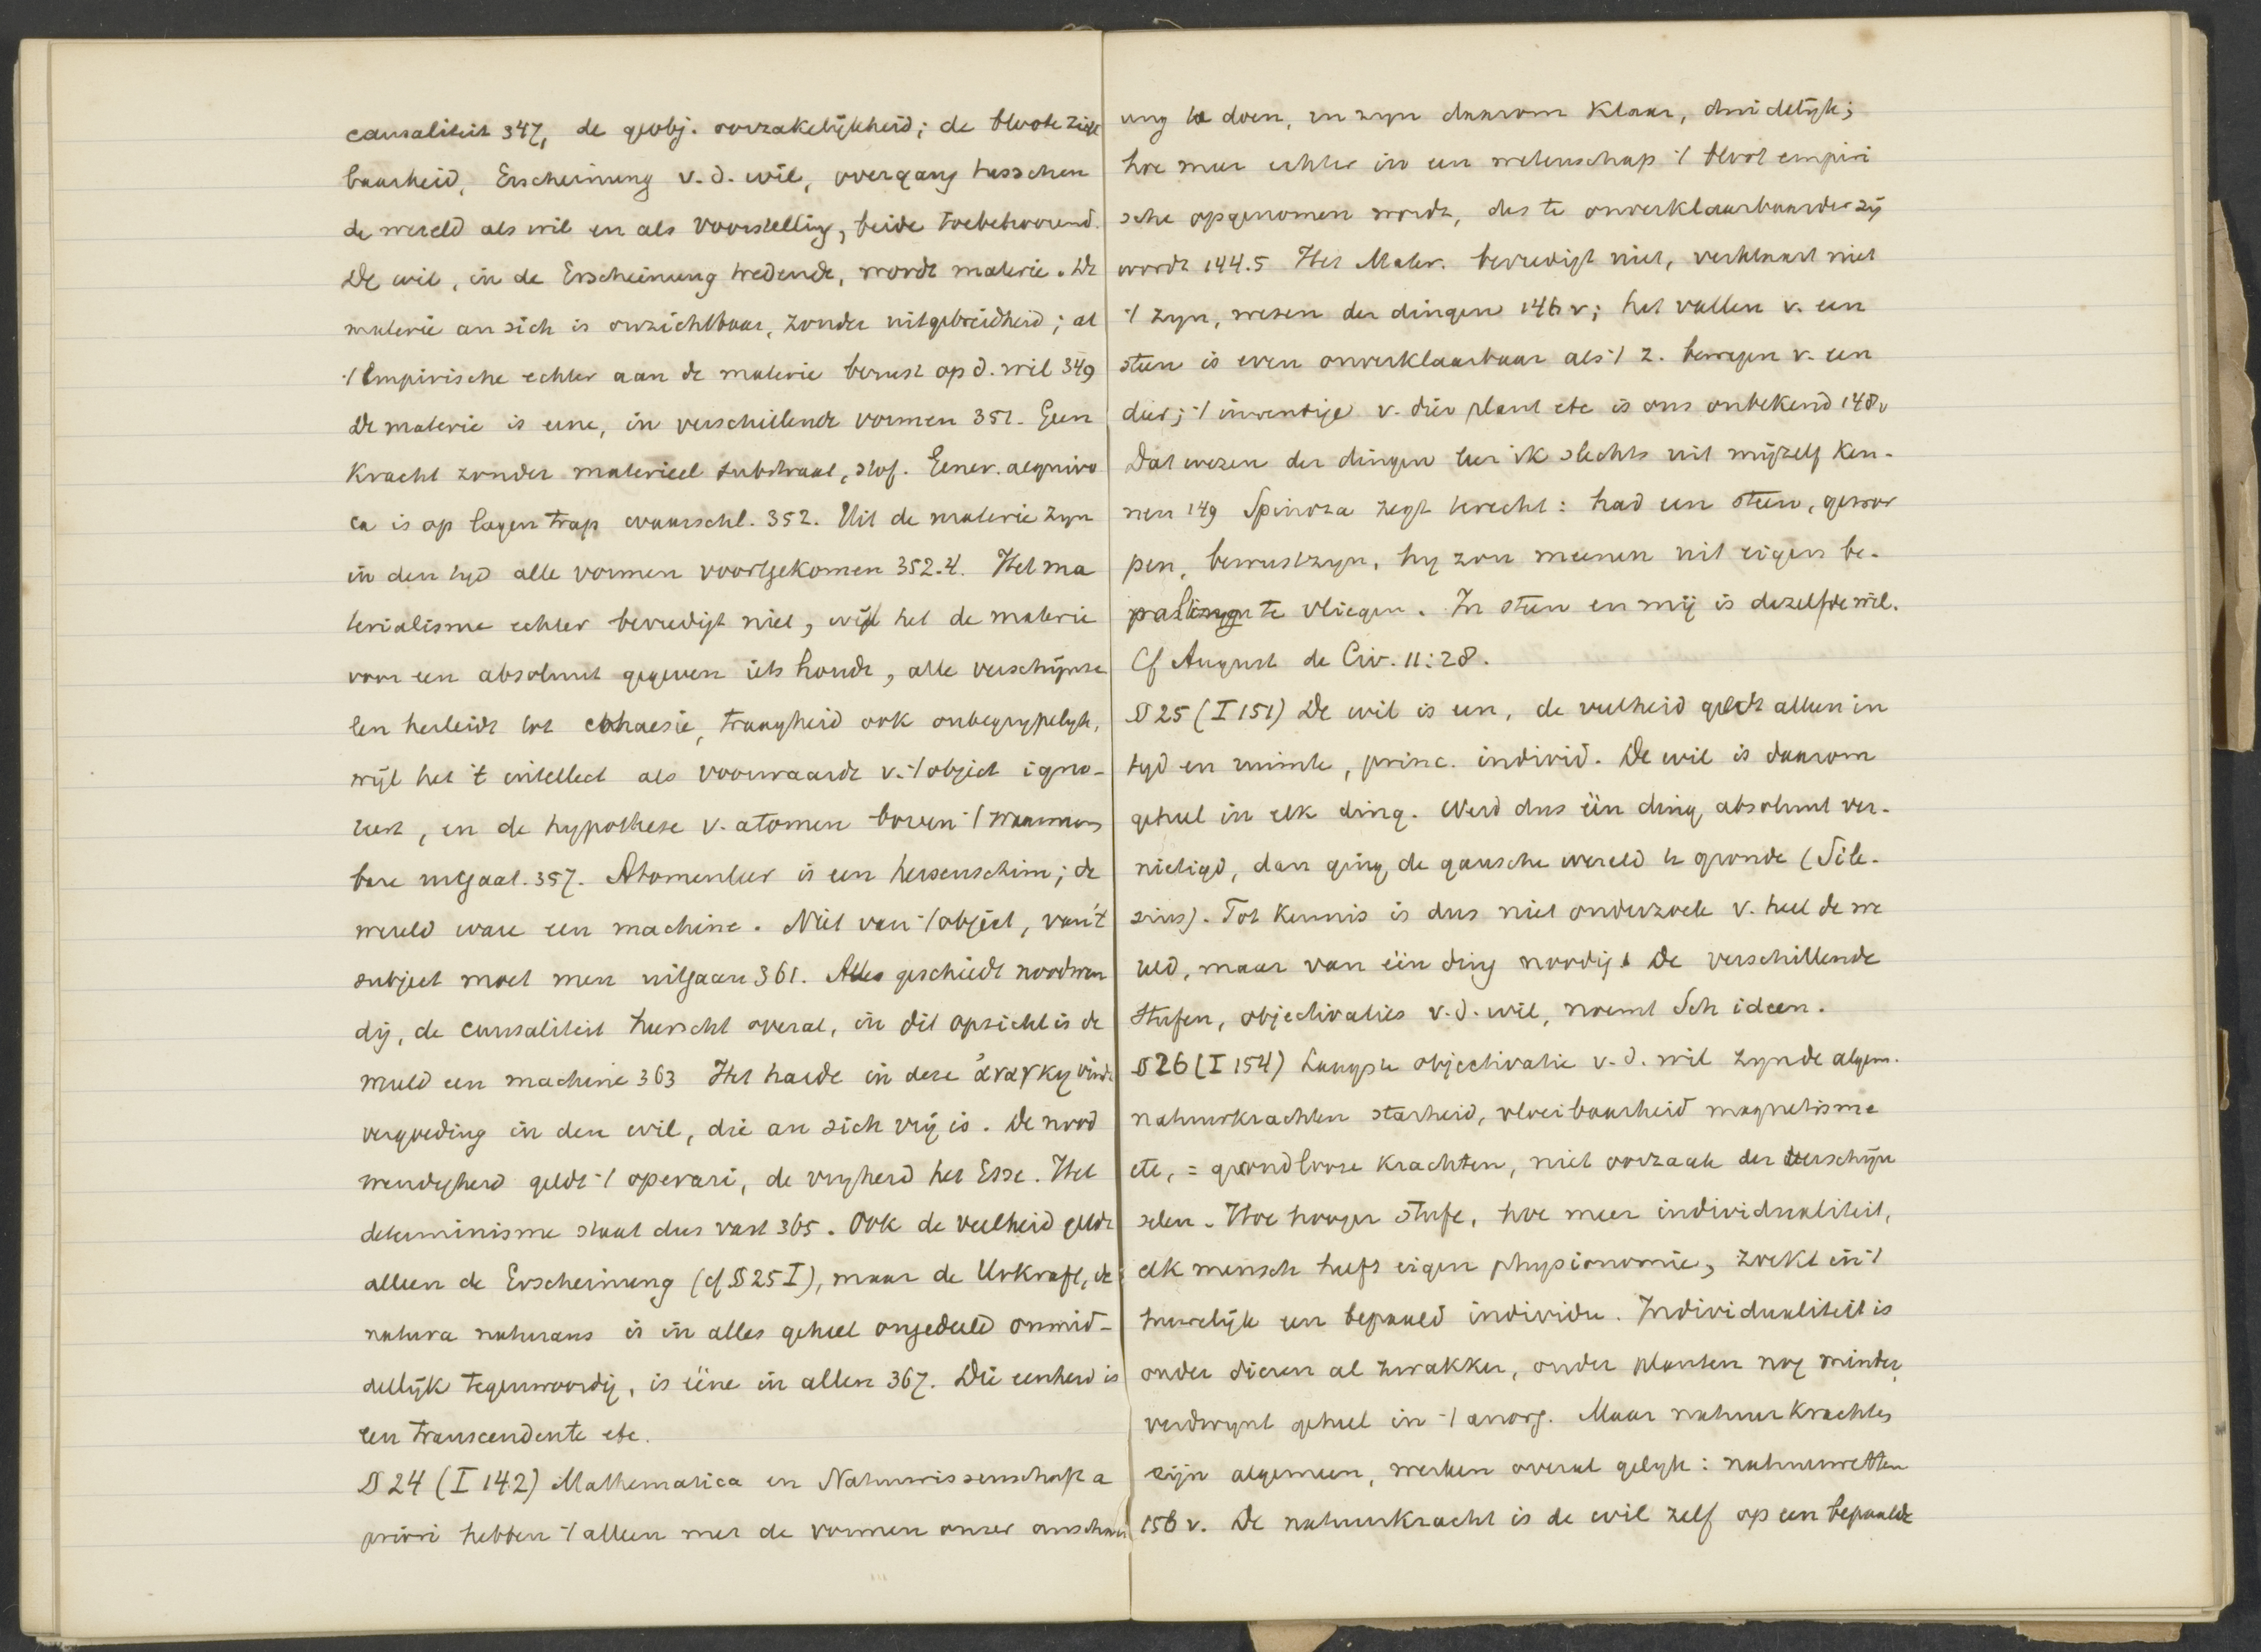 causaliteit 347, de geobj. oorzakelijkheid; de bloote zigt
baarheid, Erscheinung v.d. wil, overgang tusschen
de wereld als wil en als voorstelling, beide toebehoorend.
De wil, in de Erscheinung tredende, wordt materie. De
materie an sich is onzichtbaar, zonder uitgebreidheid; al
't Empirische echter aan de materie berust op d. wil 349
De materie is eene, in verschillende vormen 351. Geen
kracht zonder materieel substraat, stof. Gener. aequivo
ca is op lagen trap waarschl. 352. Uit de materie zyn
in den tyd alle vormen voortgekomen 352.4. Het ma
terialisme echter bevredigt niet, wijl het de materie
voor een absoluut gegeven iets houdt, alle verschijnse
len herleidt tot cohaesie, traagheid ook onbegrypelyk,
wijl het 't intellect als voorwaarde v. 't object igno-
reert, en de hypothese v. atomen boven 't waarneem
bare uitgaat. 357. Atomenleer is een hersenschim; de
wereld ware een machine. Niet van 't object, van 't
subject moet men uitgaan 361. Alles geschiedt noodwen
dig, de causaliteit heerscht overal, in dit opzicht is de
wereld een machine 363 Het harde in deze ἀναγκη vindt
vergoeding in den wil, die an sich vrij is. De nood
wendigheid geldt 't operari, de vryheid het Esse. Het
determinisme staat dus vast 365. Ook de veelheid geldt
alleen de Erscheinung (cf § 25 I), maar de Urkraft, de
natura naturans is in alles geheel ongedeeld onmid-
dellijk tegenwoordig, is ééne in allen 367. Die eenheid is
een transcendente etc.
§ 24 (I 142) Mathematica en Naturwissenschaft a
priori hebben 't alleen met de vormen onzer anschau
ung te doen, en zyn daarom klaar, duidelijk;
hoe meer echter in een wetenschap 't bloot empiri
sche opgenomen wordt, des te onverklaarbaarder zij
wordt 144.5 Het Mater. bevredigt niet, verklaart niet
't zyn, wezen der dingen 146 v; het vallen v. een
steen is even onverklaarbaar als 't z. bewegen v. een
dier; 't inwendige v. dier plant etc is ons onbekend 148v
Dat wezen der dingen leer ik slechts uit mijzelf ken-
nen 149 Spinoza zegt terecht: had een steen, gewor
pen, bewustzyn, hy zou meenen uit eigen be-
paling te vliegen. In steen en mij is dezelfde wil.
Cf August de Civ. 11:28.
§ 25 (I 151) De wil is een, de veelheid geldt alleen in
tyd en ruimte, princ. individ. De wil is daarom
geheel in elk ding. Werd dus één ding absoluut ver-
nietigd, dan ging de gansche wereld te gronde (Sile-
sius). Tot kennis is dus niet onderzoek v. heel de we
reld, maar van één ding noodig. De verschillende
Stufen, objectivaties v.d. wil, noemt Sch ideen.
§ 26 (I 154) Laagste objectivatie v.d. wil zynde algem.
natuurkrachten starheid, vloeibaarheid magnetisme
etc, = grondlooze krachten, niet oorzaak der verschijn
selen. Hoe hooger stufe, hoe meer individualiteit,
elk mensch heeft eigen physionomie, zoekt in 't
huwelijk een bepaald individu. Individualiteit is
onder dieren al zwakker, onder planten nog minder,
verdwynt geheel in 't anorg. Maar natuurkrachten
zijn algemeen, werken overal gelyk: natuurwetten
156 v. De natuurkracht is de wil zelf op een bepaalde